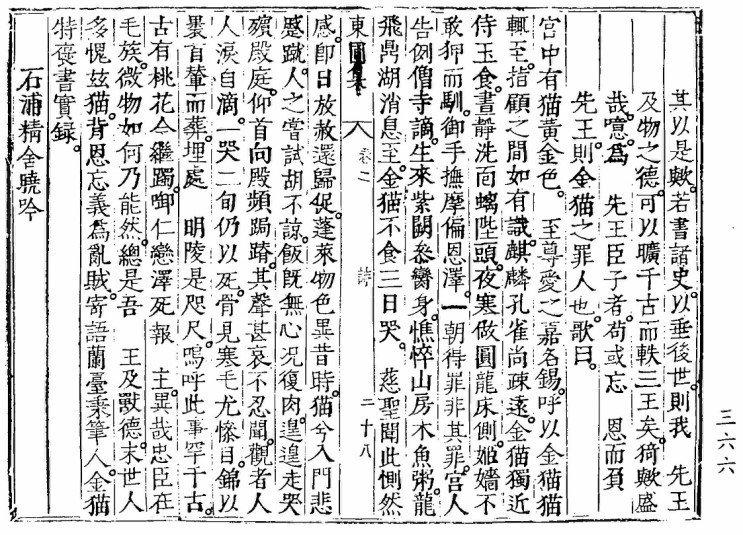 三六六
其以是歟。若書諸史。以垂後世。則我 先王
及物之德。可以曠千古而軼三王矣。猗歟盛
哉。噫。爲 先王臣子者。苟或忘 恩而負
先王。則金猫之罪人也。歌曰。
宮中有猫黃金色。 至尊愛之嘉名錫。呼以金猫猫
輒至。指顧之間如有識。麒麟孔雀尙疎遠。金猫獨近
侍玉食。晝靜洗面螭陛頭。夜寒做圓龍床側。姬嬙不
敢狎而馴。御手撫摩偏恩澤。一朝得罪非其罪。宮人
告例僧寺謫。生來紫闥叅鸞身。憔悴山房木魚粥。龍
飛鼎湖消息至。金猫不食三日哭。 慈聖聞此惻然
東圃集 卷之二 詩 二十八
感。卽日放赦還歸促。蓬萊物色異昔時。猫兮入門悲
蹙蹴。人之嘗試胡不諒。飯旣無心况復肉。遑遑走哭
殯殿庭。仰首向殿頻跼蹐。其聲甚哀不忍聞。觀者人
人淚自滴。一哭二旬仍以死。骨見寒毛尤慘目。錦以
褁首輂而葬。埋處 明陵是咫尺。嗚呼此事罕于古。
古有桃花今繼躅。啣仁戀澤死報 主。異哉忠臣在
毛族。微物如何乃能然。總是吾 王及獸德。末世人
多愧玆猫。背恩忘義爲亂賊。寄語蘭臺秉筆人。金猫
特褒書實錄。
石浦精舍曉吟